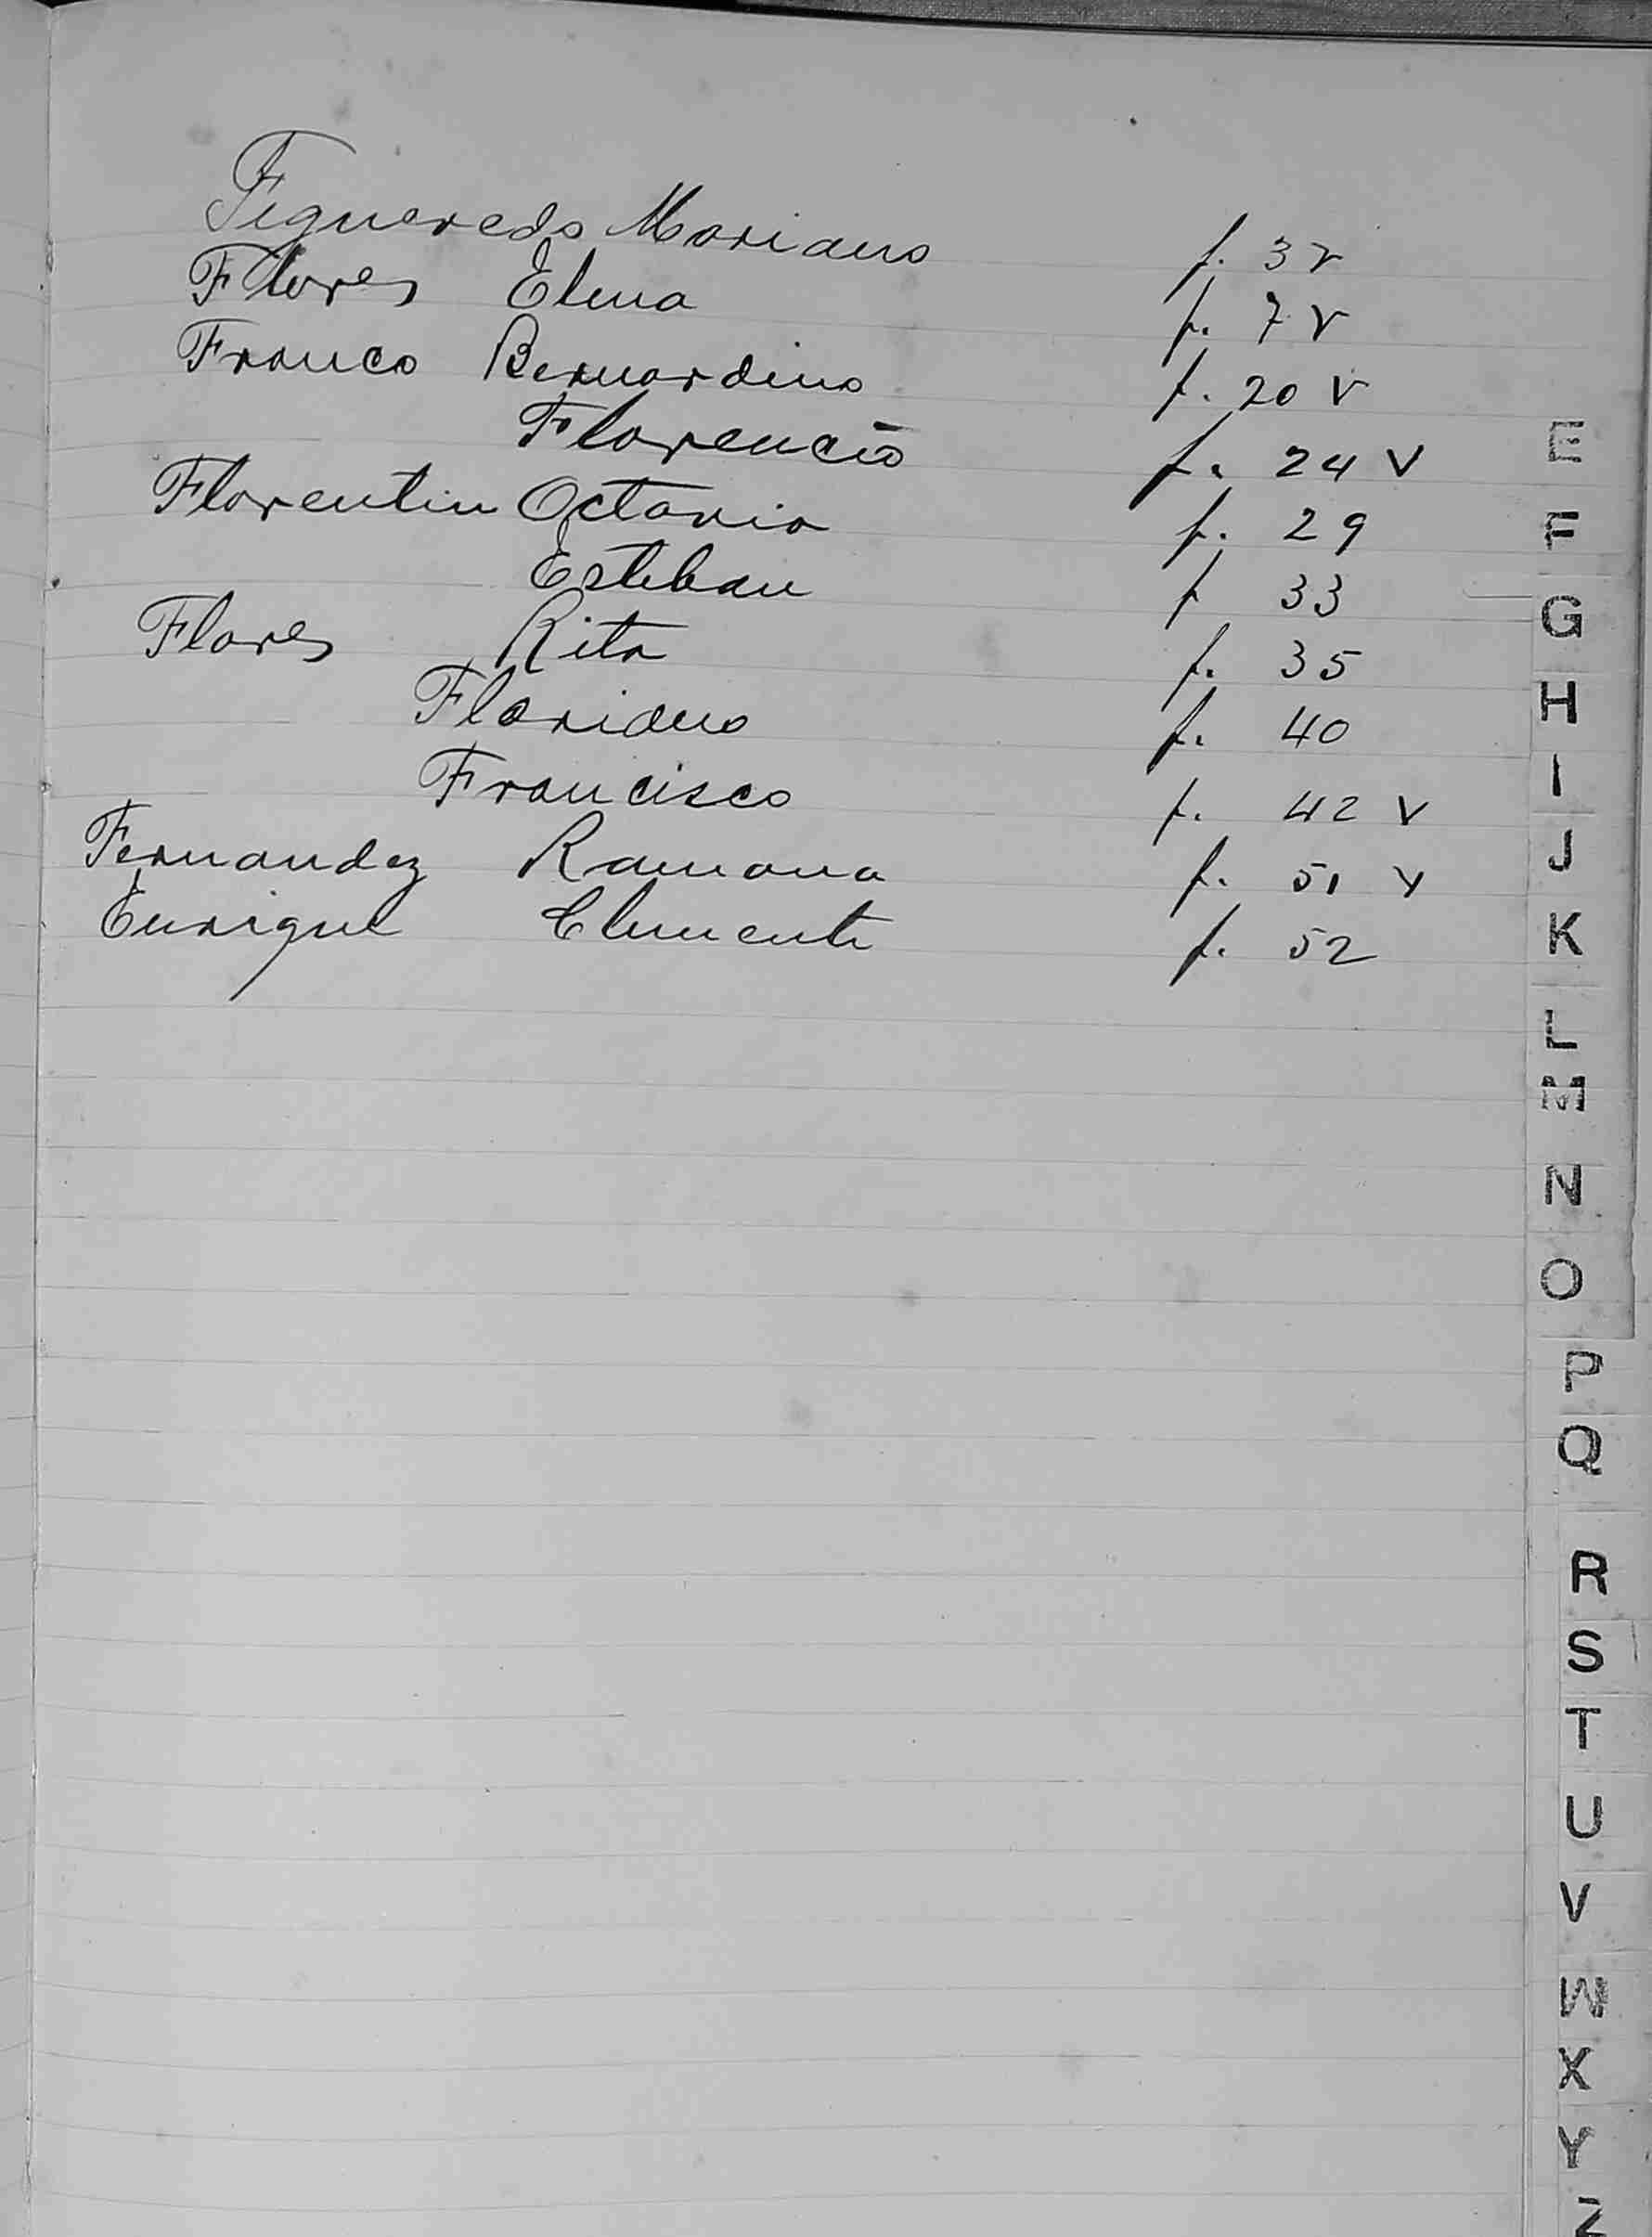 Figueredo Mariano f. 3v
Flores Elena f. 7v
Franco Bernardino f. 20 v
Florencio f. 24 v
Florentin Octavio f. 29
Esteban f 33
Flores Rita f. 35
Floriduo f. 40
Francisco f. 42 v
Fernandez Ramona f. 51 v
Enrique Clemente f. 52
E
F
G
H
I
J
K
L
M
N
O
P
Q
R
S
T
U
V
W
X
Y
Z